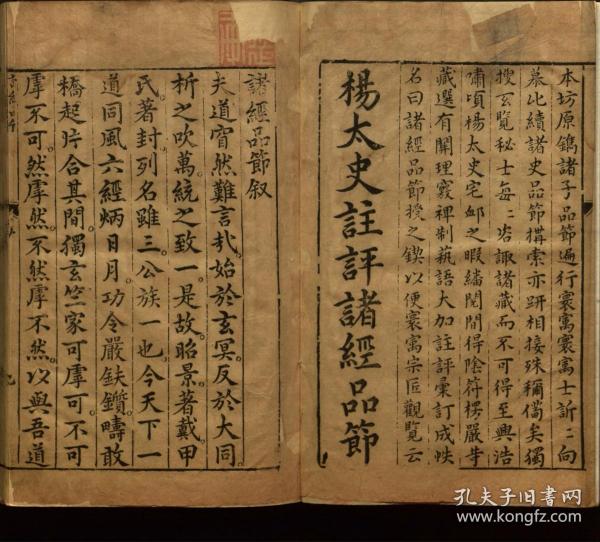 本坊原鐫諸子品節遍行寰寓寰寓士訢〻向
慕比續諸史品節購索亦趼相接殊稱偹矣獨
搜玄覽秘士每〻咨諏諸藏而不可得至興浩
嘯頃楊太史宅䘏之暇繙閱間得陰符楞嚴寺
藏選有關理窽裨制蓺語大加註評彙訂成帙
名曰諸經品節授之鍥以便寰寓宗匠觀覽云
楊太史註評諸經品節
諸經品節叙
夫道窅然難言㢤始於玄冥反於大同
析之吹萬統之致一是故昭景著戴甲
氏著封列名雖三公族一也今天下一
道同風六經炳日月功令嚴鈇鑕疇敢
橋起片合其間獨玄竺家可虖可不可
虖不可然虖然不然虖不然以與吾道
孔夫子旧书网
www.kongfz.com